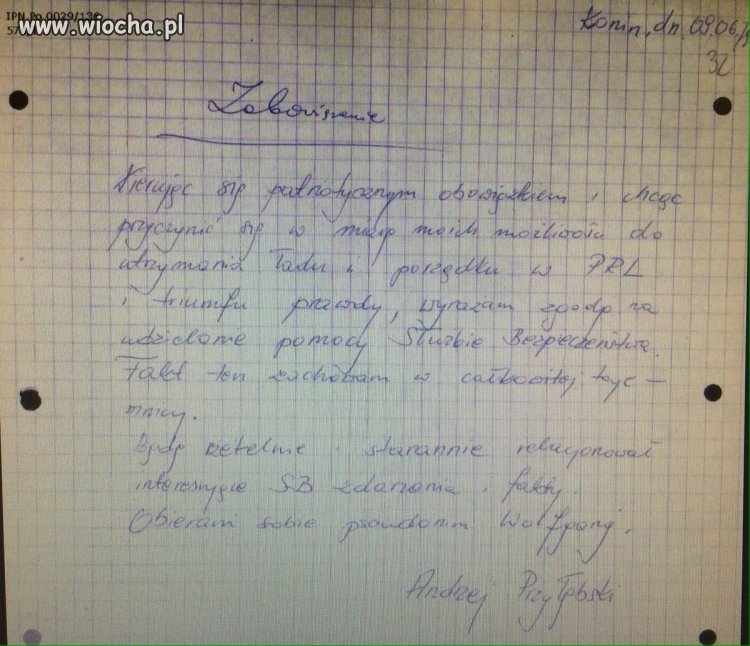 IPN Po 0029/136
www.wiocha.pl
Konin, dn. 09.06.
32
Zobowiązanie
Kierując się patriotycznym obowiązkiem i chcąc
przyczynić się w miarę moich możliwości do
utrzymania ładu i porządku w PRL
i triumfu prawdy, wyrażam zgodę na
udzielanie pomocy Służbie Bezpieczeństwa.
Fakt ten zachowam w całkowitej taje-
mnicy.
Będę rzetelnie i starannie relacjonował
interesujące SB zdarzenia i fakty.
Obieram sobie pseudonim Wolfgang.
Andrzej Przyłębski